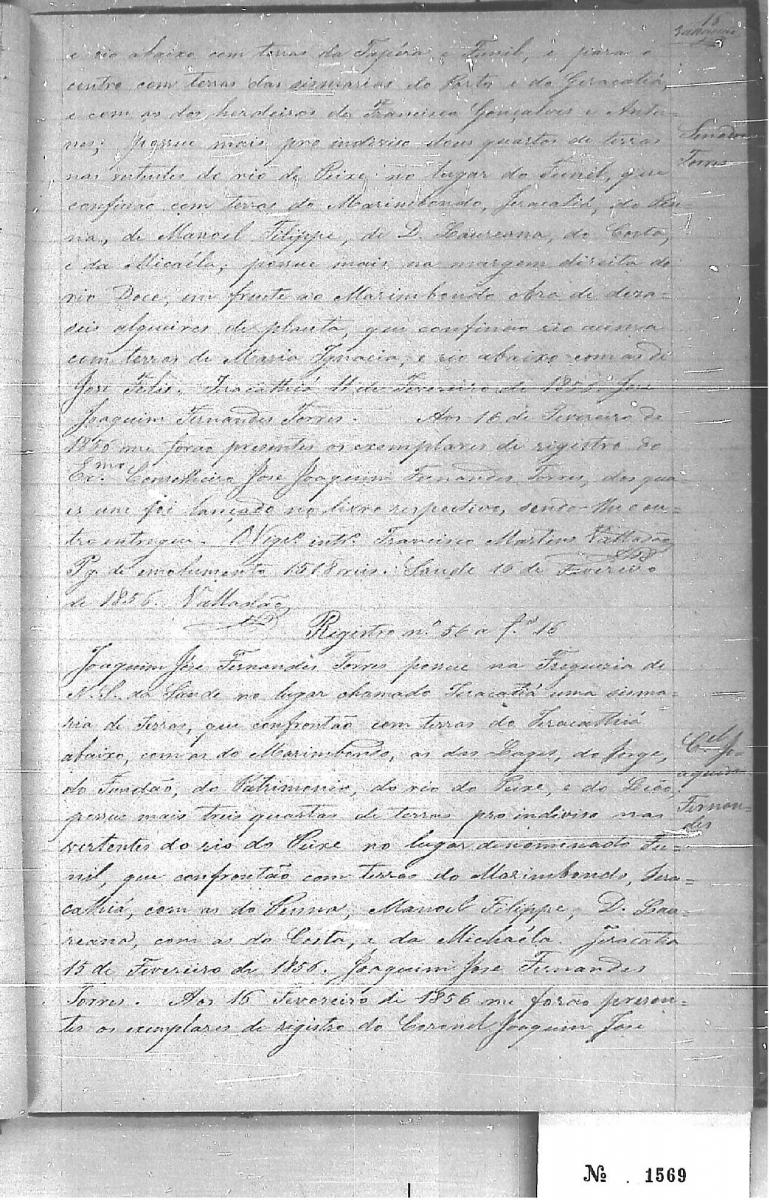 15
e rio abaixo com terras da Tapéra e Funil, e para o
centro com terras das sismarias do Porto e do Jeracatiá,
e com as dos herdeiros de Francisco Gonçalves e Antu-
nes; possue mais pro indiviso dous quartos de terras
nas vertentes do rio do Peixe no lugar do Funil, que
confinão com terras do Marimbondo, Jeracatiá, do Pen-
na, de Manoel Filippe, de D. Laureana, do Costa,
e da Micaéla; possue mais na margem direita do
rio Doce, em frente ao Marimbondo obra de deza-
seis alqueires de planta, que confinão rio acima
com terras de Maria Ignacia, e rio abaixo com as de
José Felis. Jeracathiá 11 de Fevereiro de 1856 José
Joaquim Fernandes Torres. Aos 16 de Fevereiro de
1856 me forão presentes os exemplares de registro do
Ex.mo Conselheiro José Joaquim Fernandes Torres, dos qua-
es um foi lançado no livro respectivo, sendo-lhe o ou-
tro entregue. O Vigr.º intr.º Francisco Martins Valladão
Pg. de emolumento 1518 reis. Saude 16 de Fevereiro
de 1856. Valladão
Registro n.º 56 a f.as 16
Joaquim José Fernandes Torres possue na Freguezia de
N. S. da Saude no lugar chamado Jeracatiá uma sisma-
ria de Terras, que confrontão com terras do Jeracathiá
abaixo, com as do Marimbondo, as das Lages, do Jorge,
do Fundão, do Patrimonio, do rio do Peixe, e do Lião,
possue mais tres quartas de terras pro indiviso nas
vertentes do rio do Peixe no lugar denomenado Fu-
nil, que confrontão com terras do Marimbondo, Jera-
cathiá, com as do Penna, Manoel Filippe, D. Lau-
reana, com as do Costa, e da Michaéla. Jeracatiá
15 de Fevereiro de 1856. Joaquim José Fernandes
Torres. Aos 16 Fevereiro de 1856 me forão presen-
tes os exemplares de registro do Coronel Joaquim José
Senador
Torres
C.el Jo-
aquim
Fernan-
des
Nº 1569